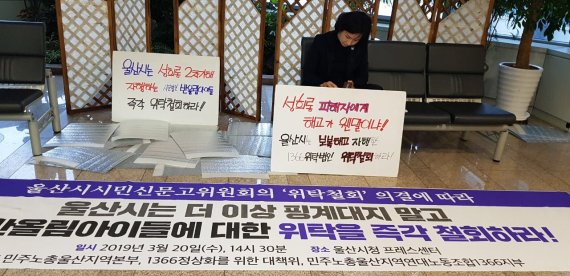 울산시는 성희롱 2차가해
자행하는
즉각 위탁철회하라!
성희롱 피해자에게
해고가 웬말이냐!
울산시는 보복해고 자행
1366위탁법인 위탁철회하라!
울산시시민신문고위원회의 '위탁철회' 의결에 따라
울산시는 더 이상 핑계대지 말고
한올림아이들에 대한 위탁을 즉각 철회하라!
일시 2019년 3월 20일(수), 14시 30분 장소 울산시청 프레스센터
민주노총울산지역본부, 1366정상화를 위한 대책위, 민주노총울산지역연대노동조합1366지부